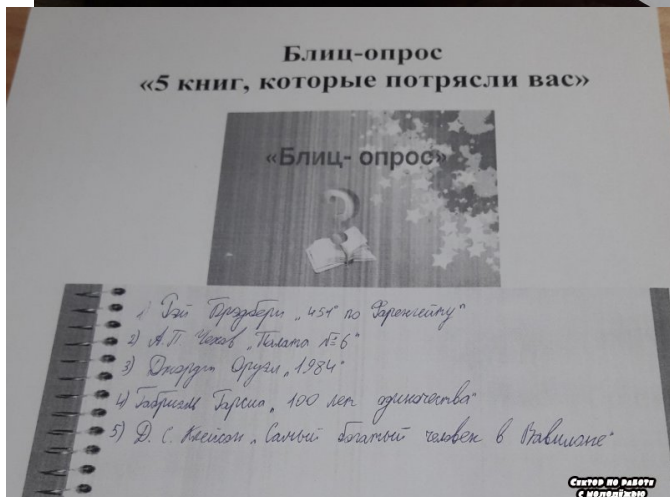 Блиц-опрос
«5 книг, которые потрясли вас»
«Блиц- опрос»
1) Рэй Брэдбери „451° по Фаренгейту"
2) А.П Чехов „Палата №6"
3) Джордж Оруэл „1984"
4) Габриэль Гарсиа „100 лет одиночества"
5) Д. С. Клейсон „Самый богатый человек в Вавилоне"
Сектор по работе
с молодёжью